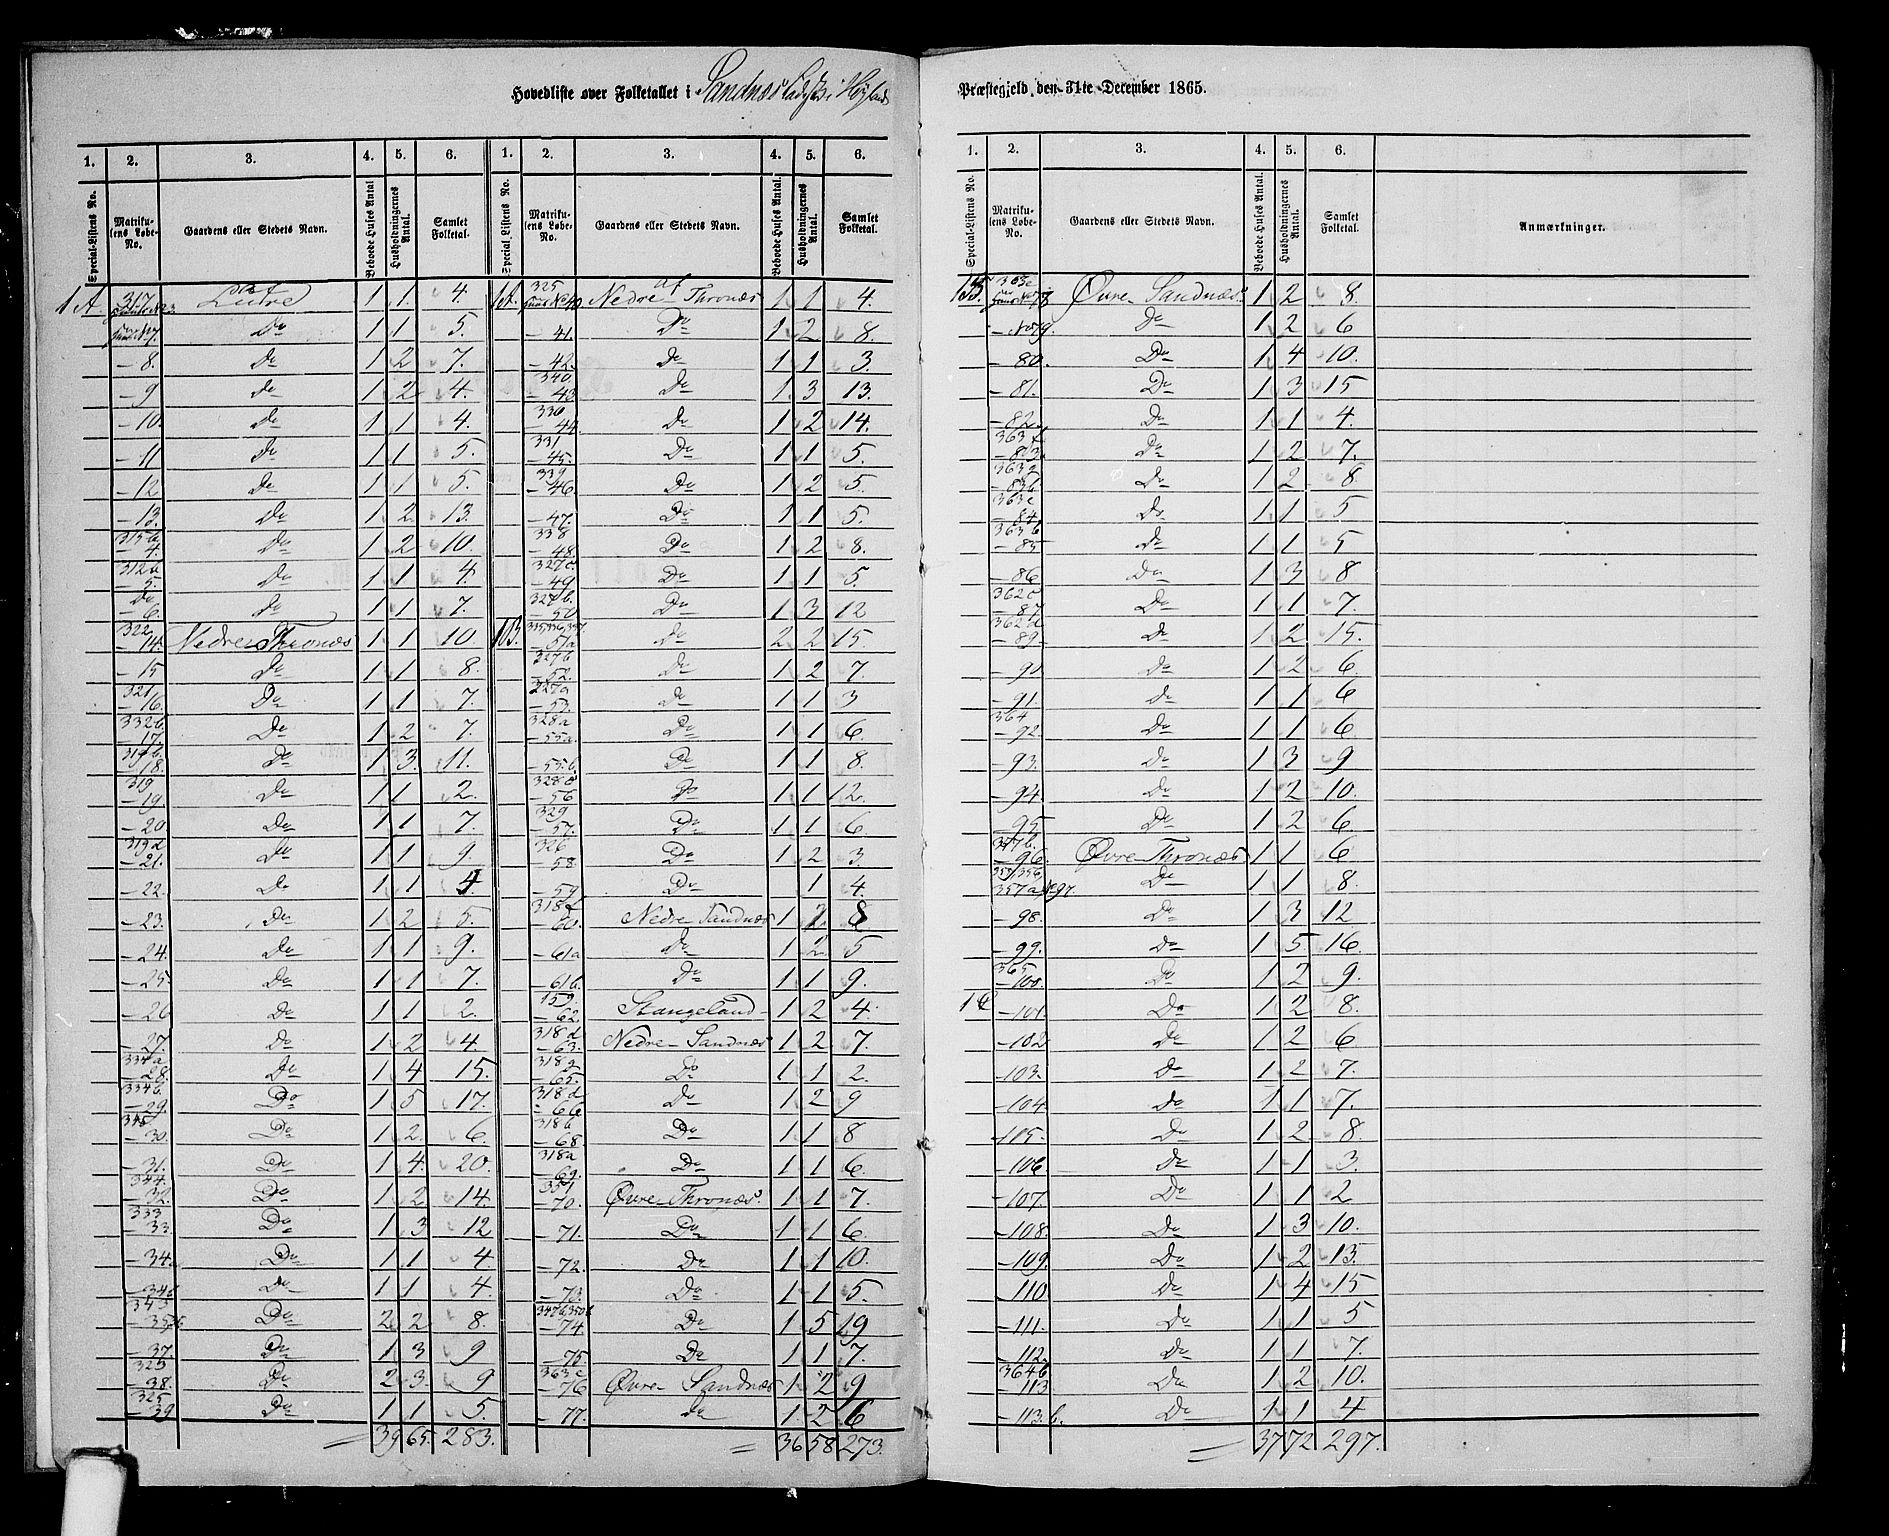 Hovedliste over Folketallet i Sandnæs Ladest. i Høyland
Præstegjeld, den 31te December 1865.
1. 2. 3. 4. 5. 6. 1. 2. 3. 4. 5. 6.
Special-Listens No. Matrikulens Løbe-No. Gaardens eller Stedets Navn. Beboede Huses Antal Husholdningernes Antal. Samlet Folketal. Special Listens No. Matrikulens Løbe-No. Gaardens eller Stedets Navn. Beboede Huses Antal. Husholdningernes Antal. Samlet Folketal.
1 A. 317 Af Lutre 1 1. 4. 1A. 325 Huus No 40 af Nedre Thronæs 1 1 4.
Huus No 7. Do 1 1 5. - 41. Do 1 2 8.
- 8. do 1 2 7. - 42. do 1 1 3.
- 9 do 1 2 4. 340. - 43 do 1 3 13.
- 10. do 1 1 4. 330 - 44. do 1 2 14.
- 11 do 1 1 5. 331 - 45. Do 1 1 5.
- 12 do 1 1 5. 339 - 46. Do 1 2 5.
- 13. do 1 2. 13. - 47. Do 1 1 5.
315b - 4. do 1 2 10. 338 - 48. Do 1 2 8.
312b - 5. do 1 1 4. 327c. - 49 Do 1 1 5.
do - 6. do 1 1 7. 327b. - 50 Do 1 3 12
322 - 14. Nedre Thronæs 1 1 10. 1B. - 51a do 2 2 15.
- 15 do 1 1 8. 327b - 52. do 1 2 7.
321 - 16. Do 1 1 7. 327a - 53. do 1 1 3
332b. 17. Do 1 2 7. 328a - 55a. Do 1 1 6.
319b - 18. Do 1 3. 11. - 55.b. Do 1 1 8.
319 - 19. Do 1 1 2. 328c - 56 Do 1 1 12.
- 20. Do 1 1 7. 329 - 57. Do 1 1 6.
319d - 21. do 1 1 9. 326 - 58. Do 1 2 3.
- 22. do 1 1 4 - 59. Do 1 4.
- 23. do 1 2 5. 318f - 60. Nedre Sandnæs 1 2 8
- 24. do 1 1 9. - 61a do 1 2. 5
- 25. Do 1 1 7. - 61b. Do 1 1 9.
- 26 Do 1 1 2. 159. - 62 Stangeland 1 2 4.
- 27. Do 1 2 4. 318d - 63. Nedre Sandnæs 1 2 7.
334a - 28. Do 1 4 15. 318g - 65. Do 1 1 2.
334b. - 29. Do 1 5 17. 318d - 66 Do 1 2 9
345 - 30. Do 1 2. 6. 318b - 68 Do 1 1 8
- 31. Do 1 4. 20. 318a - 69. Do 1 1 6.
344. - 32. Do 1 2 14. 351 - 70. Øvre Thronæs. 1 1 7.
333 - 33. Do 1 3 12 - 71. Do 1 1 6.
- 34. Do 1 1 4 - 72. Do 1 1 10.
- 34b do 1 1 4. - 73. Do 1 1 5.
343 - 35 Do 2 2 8. 347b, 350b - 74. Do 1 5 19
- 37. Do 1 3 9 - 75. Do 1 1 7.
323 - 38. Do 2 3. 9 363c - 76 Øvre Sandnæs 1 2 9
325 - 39 Do 1 1 5. - 77. do 1 2 6
= 39 65. 283. = 36 58 273.
1. 2. 3. 4. 5. 6.
Special-Listens No. Matrikulens Løbe-No. Gaardens eller Stedets Navn. Beboede Huses Antal. Husholdningernes Antal. Samlet Folketal. Anmærkninger.
1B 363c Huus No 78 Øvre Sandnæs. 1 2 8.
- No 79. Do 1 2 6
- 80. Do 1 4 10.
- 81. Do 1 3 15
- 82. Do 1 1 4.
363f - 83. Do 1 2 7.
363g - 83b. Do 1 2 8
363e - 84. Do 1 1 5
363b - 85 Do 1 1 5
- 86 Do 1 3 8
362c - 87. Do 1 1 7.
362d - 89. Do 1 2 15.
- 90. Do 1 2 6
- 91. do 1 1 6
364 - 92. Do 1 1 6
- 93. do 1 3 9
- 94. do 1 2 10.
- 95. Do 1 2 6
347b. - 96. Øvre Thronæs 1 1 6
357a No 97. Do 1 1 8.
- 98. Do 1 3 12
- 99. do 1 5 16.
365 - 100. Do 1 2 9.
1C - 101. Do 1 2 8.
- 102 Do 1 2 6
- 103. Do 1 2 7.
- 104. Do 1 1 7.
- 105. Do 1 2 8.
- 106 Do 1 1 3.
- 107. Do 1 1 2
- 108. Do 1 3 10.
- 109. Do 1 2 13.
- 110 Do 1 4 15
- 111. Do 1 1 5
- 112. Do 1 1 7.
364b - 113 Do 1 2 10.
- 113.b. Do 1 1 4
= 37 72 297.